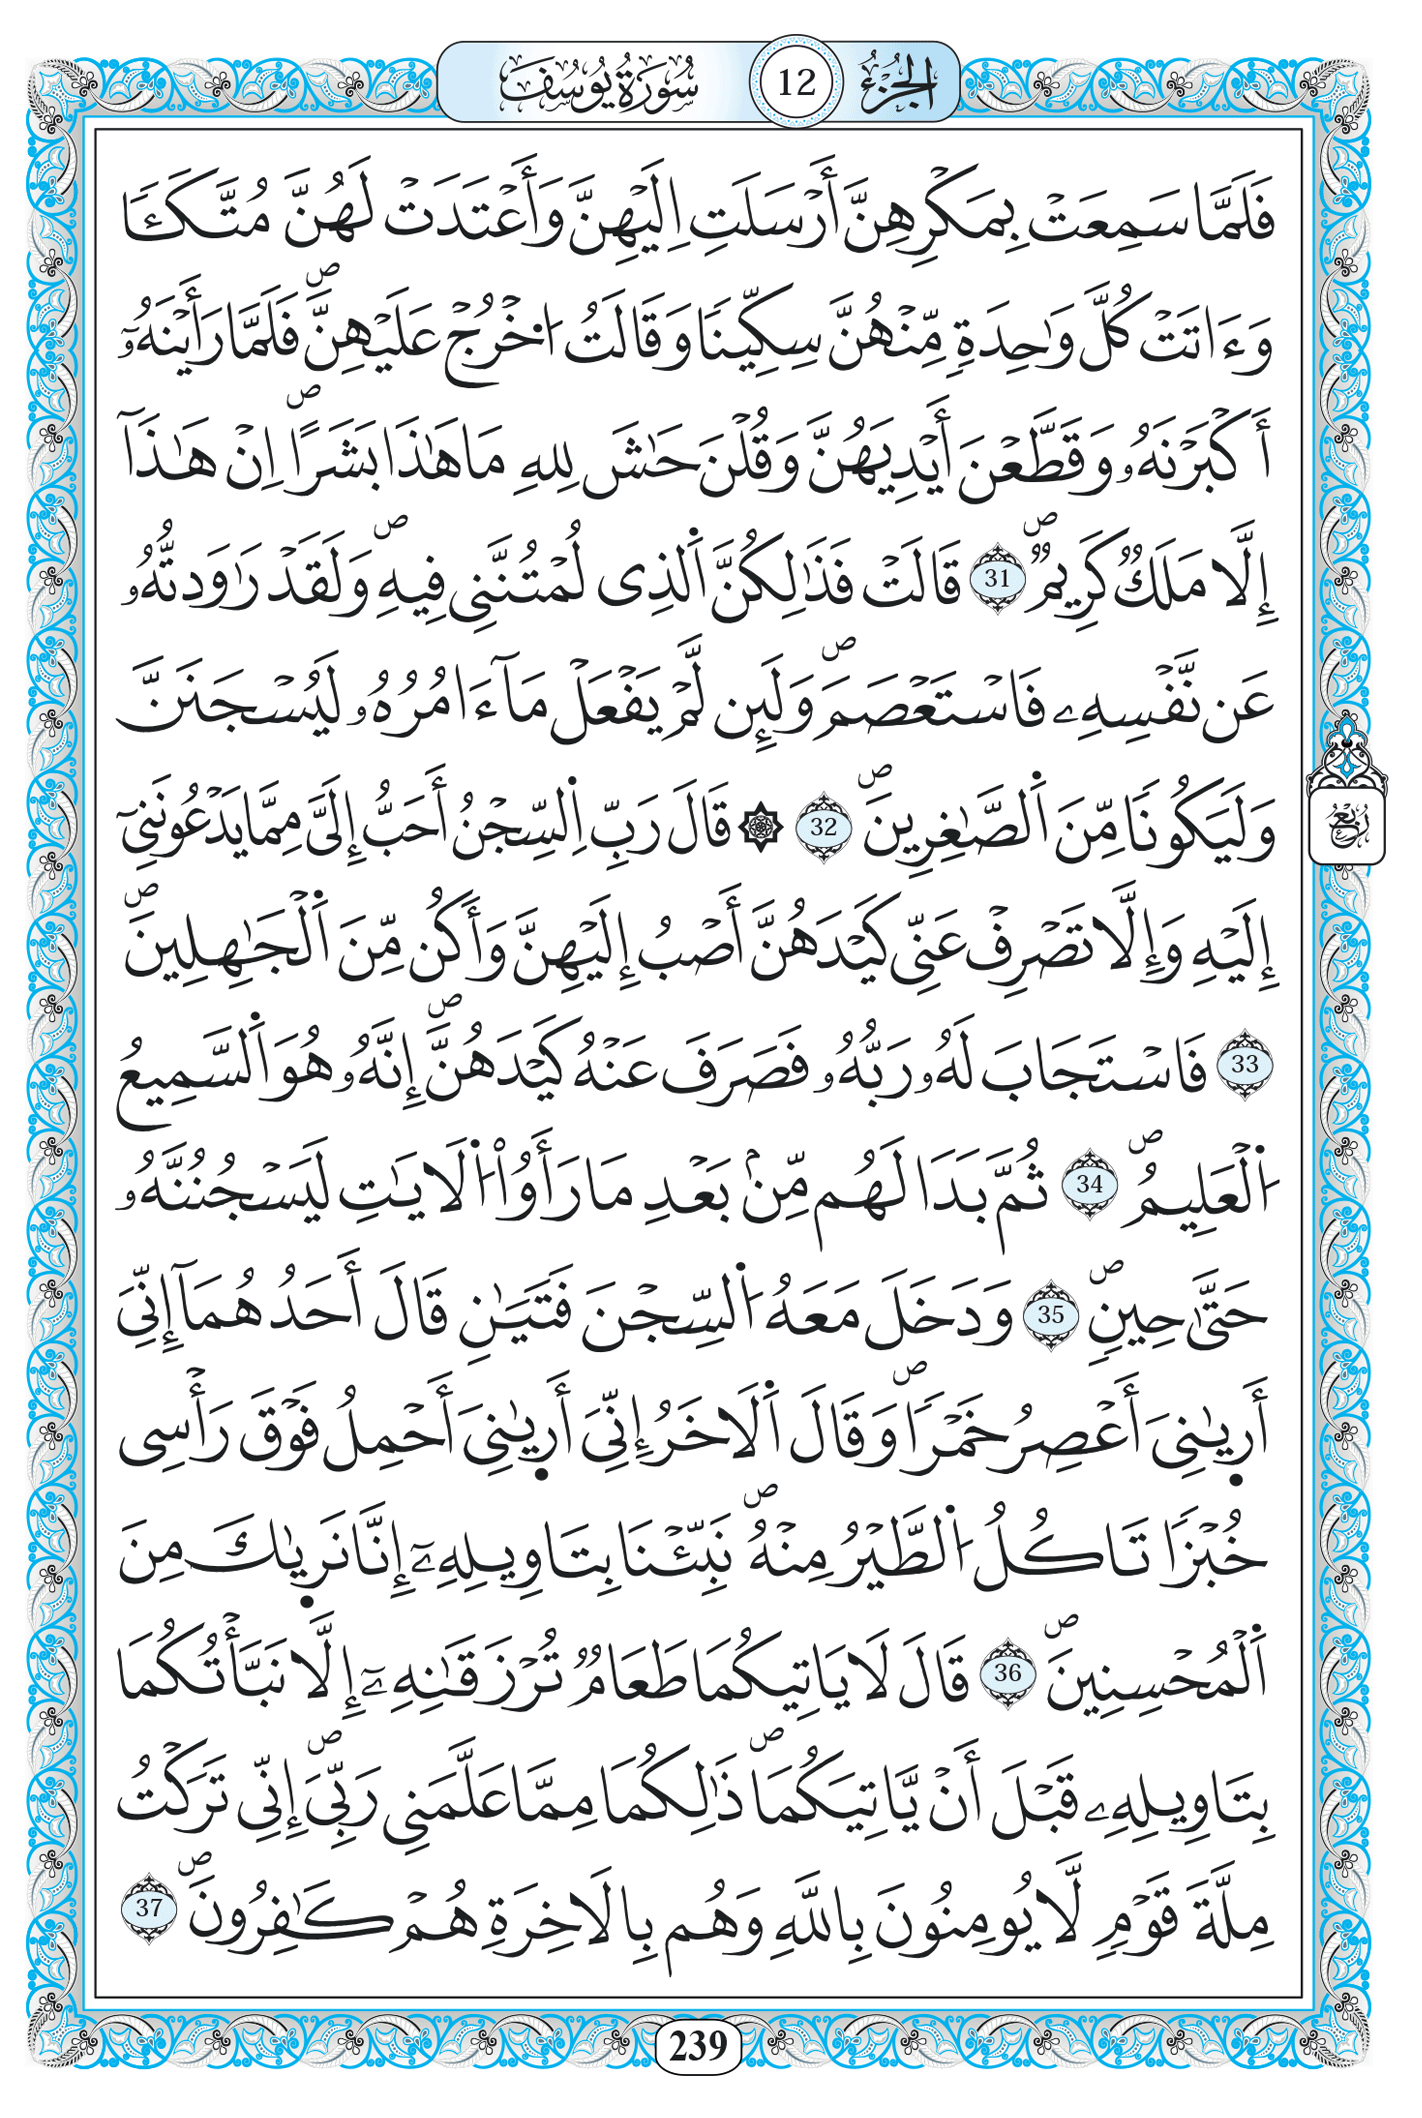 الجزء 12 سورة يوسف
فَلَمَّا سَمِعَتْ بِمَكْرِهِنَّ أَرْسَلَتِ اِلَيْهِنَّ وَأَعْتَدَتْ لَهُنَّ مُتَّكَـٔٗا
وَءَاتَتْ كُلَّ وَٰحِدَةٖ مِّنْهُنَّ سِكِّينٗا وَقَالَتُ اُ۟خْرُجْ عَلَيْهِنَّۖ فَلَمَّا رَأَيْنَهُۥٓ
أَكْبَرْنَهُۥ وَقَطَّعْنَ أَيْدِيَهُنَّ وَقُلْنَ حَٰشَ لِلهِ مَا هَٰذَا بَشَراًۖ اِنْ هَٰذَآ
إِلَّا مَلَكٞ كَرِيمٞۖ 31 قَالَتْ فَذَٰلِكُنَّ اَ۬لذِى لُمْتُنَّنِى فِيهِۖ وَلَقَدْ رَٰوَدتُّهُۥ
عَن نَّفْسِهِۦ فَاسْتَعْصَمَۖ وَلَئِن لَّمْ يَفْعَلْ مَآ ءَامُرُهُۥ لَيُسْجَنَنَّ
وَلَيَكُوناٗ مِّنَ اَ۬لصَّٰغِرِينَۖ 32 ۞ قَالَ رَبِّ اِ۬لسِّجْنُ أَحَبُّ إِلَىَّ مِمَّا يَدْعُونَنِىٓ
إِلَيْهِ وَإِلَّا تَصْرِفْ عَنِّى كَيْدَهُنَّ أَصْبُ إِلَيْهِنَّ وَأَكُن مِّنَ اَ۬لْجَٰهِلِينَۖ
33 فَاسْتَجَابَ لَهُۥ رَبُّهُۥ فَصَرَفَ عَنْهُ كَيْدَهُنَّۖ إِنَّهُۥ هُوَ اَ۬لسَّمِيعُ
اُ۬لْعَلِيمُۖ 34 ثُمَّ بَدَا لَهُم مِّنۢ بَعْدِ مَا رَأَوُاْ اُ۬لَايَٰتِ لَيَسْجُنُنَّهُۥ
حَتَّىٰ حِينٖۖ 35 وَدَخَلَ مَعَهُ اُ۬لسِّجْنَ فَتَيَٰنِ قَالَ أَحَدُهُمَآ إِنِّىَ
أَرٜيٰنِىَ أَعْصِرُ خَمْراٗۖ وَقَالَ اَ۬لَاخَرُ إِنِّىَ أَرٜيٰنِىَ أَحْمِلُ فَوْقَ رَأْسِى
خُبْزاٗ تَاكُلُ اُ۬لطَّيْرُ مِنْهُۖ نَبِّئْنَا بِتَاوِيلِهِۦٓ إِنَّا نَرٜيٰكَ مِنَ
اَ۬لْمُحْسِنِينَۖ 36 قَالَ لَا يَاتِيكُمَا طَعَامٞ تُرْزَقَٰنِهِۦٓ إِلَّا نَبَّأْتُكُمَا
بِتَاوِيلِهِۦ قَبْلَ أَنْ يَّاتِيَكُمَاۖ ذَٰلِكُمَا مِمَّا عَلَّمَنِى رَبِّىَۖ إِنِّى تَرَكْتُ
مِلَّةَ قَوْمٖ لَّا يُومِنُونَ بِاللَّهِ وَهُم بِالَاخِرَةِ هُمْ كَٰفِرُونَۖ 37
ربع
239